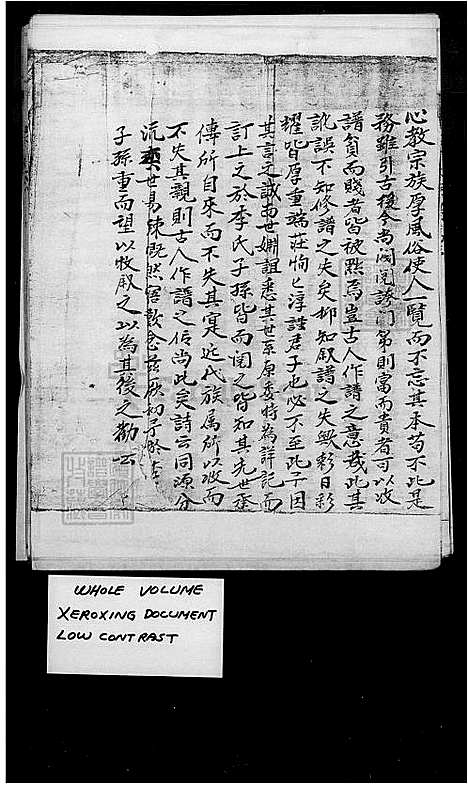 心教宗族厚風俗使人一覽而不忘其本苟不此是
務雖引古援今尚閥閱誇門第則富而貴者可以收
譜貧而賤者皆被黜焉豈古人作譜之意哉此其
訛誤不知修譜之失矣抑知叙譜之失歟彩日彩
耀皆厚重端莊恂々淳謹君子也必不至此予因
其言之誠而世姻誼悉其世系原委特為詳記而
訂上之於李氏子孫皆而閱之皆知其先世丞
傳所自來而不失其寔近代族属所以收而
不失其親則古人作譜之作尚此矣詩云同源分
流世易疎慨然寤歎念兹厥初予於李
子孫重而望以收叙之以為其後之勸云
WHOLE VOLUME
XEROXING DOCUMENT
LOW CONTRAST